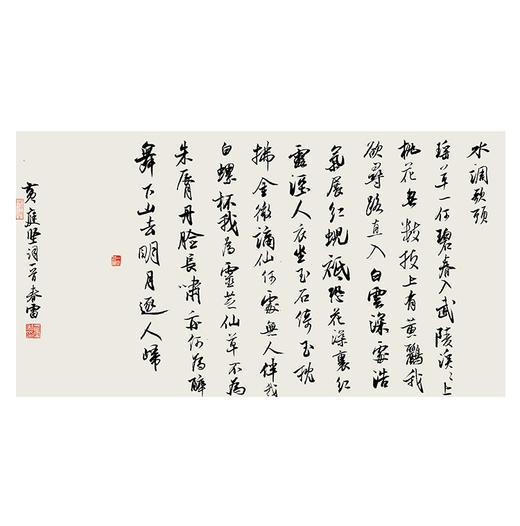 水调歌頭
瑶草一何碧春入武陵溪溪上
桃花無数枝上有黄鸝我
欲尋路直入白雲深處浩
氣展虹蜺祇恐花深裏紅
露溼人衣坐玉石倚玉枕
拂金徽謫仙何處無人伴我
白螺杯我為靈芝仙草不為
朱脣丹臉長嘯亦何為醉
舞下山去明月逐人歸
黄庭坚词一首春雷